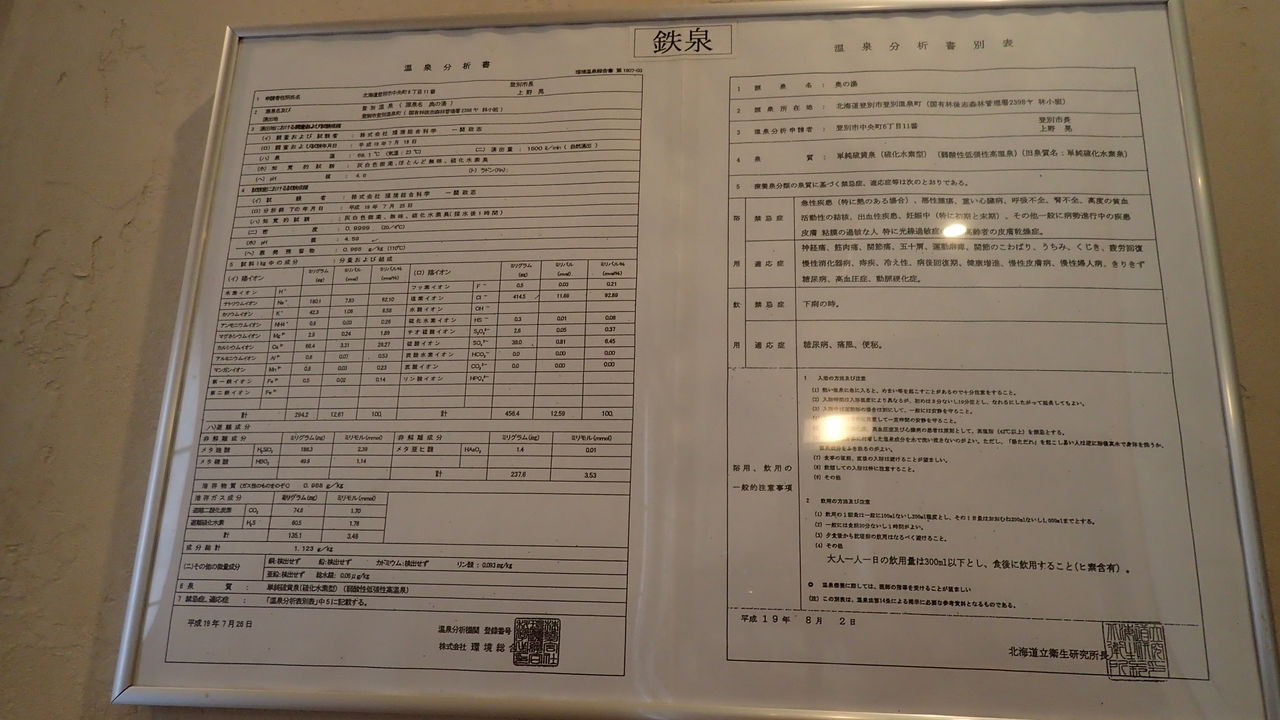 鉄泉
温泉分析書
1 申請者住所氏名 北海道登別市中央町6丁目11番 登別市長 上野 晃
2 源泉名及び湧出地 登別温泉(源泉名 奥の湯)
登別市登別温泉町(国有林後志森林管理署2398ヤ 林小班)
3 湧出地における調査および試験成績
(イ)調査および試験者 : 株式会社 環境総合科学 一関政志
(ロ)調査および試験年月日 : 平成19年7月18日
(ニ)湧出量 : 1500ℓ/min(自然湧出)
(ホ)知覚的試験 : 灰白色微濁、ほとんど無味、硫化水素臭
(ヘ)pH値 : 4.6 (ト)ラドン(Rn):
4 試験室における試験成績
(イ)試験者 : 株式会社 環境総合科学 一関政志
(ロ)分析終了の年月日 : 平成19年7月25日
(ハ)知覚的試験 : 灰白色微濁、無味、硫化水素臭(採水後1時間)
(ニ)密度 : 0.9999 (20/4℃)
(ホ)pH値 : 4.58
(ヘ)蒸発残留物 : 0.966 g/kg (110℃)
5 試料1kg中の成分 : 分量及び組成
(イ)陽イオン ミリグラム(mg) ミリバル(mval) ミリバル% (ロ)陰イオン ミリグラム(mg) ミリバル(mval) ミリバル%
水素イオン H⁺ フッ素イオン F⁻ 0.5 0.03 0.21
ナトリウムイオン Na⁺ 180.1 7.83 62.10 塩素イオン Cl⁻ 414.5 11.69
カリウムイオン K⁺ 42.3 1.08 8.58 水酸イオン OH⁻
アンモニウムイオン NH4⁺ 0.03 硫化水素イオン HS⁻ 0.3 0.01 0.08
マグネシウムイオン 2.9 0.24 チオ硫酸イオン S₂O₃²⁻ 2.6 0.05 0.37
カルシウムイオン Ca²⁺ 66.4 3.31 26.27 硫酸イオン SO₄²⁻ 39.0 0.81 6.45
アルミニウムイオン Al³⁺ 0.6 0.07 0.53 炭酸水素イオン HCO₃⁻ 0.0 0.00 0.00
マンガンイオン 0.03 0.23 炭酸イオン CO₃²⁻ 0.0 0.00 0.00
第一鉄イオン 0.5 0.02 0.14 リン酸イオン HPO₄²⁻
第二鉄イオン
計 294.2 12.61 100. 計 456.4 12.59 100.
(ハ)遊離成分
非解離成分 ミリグラム(mg) ミリモル(mmol) 非解離成分 ミリグラム(mg) ミリモル(mmol)
メタ珪酸 H₂SiO₃ 186.3 2.39 メタ亜ヒ酸 HAsO₂ 1.4 0.01
メタ硼酸 HBO₂ 49.9 1.14
計 237.6 3.53
溶存物質(ガス性のものをのぞく) 0.988 g/kg
溶存ガス成分 ミリグラム(mg) ミリモル(mmol)
遊離二酸化炭素 CO₂ 74.6 1.70
遊離硫化水素 H₂S 60.5 1.78
計 135.1 3.48
成分総計 1.123 g/kg
(ニ)その他の微量成分 銅:検出せず 鉛:検出せず カドミウム:検出せず リン酸:0.093mg/kg
亜鉛:検出せず 総水銀:0.05μg/kg
6 泉質 : 単純硫黄泉(硫化水素型)(弱酸性低張性高温泉)
7 禁忌症、適応症 : 「温泉分析表別表」中5に記載する。
平成19年7月26日
温泉分析機関 登録番号
株式会社 環境総合
温泉分析書別表
1 源泉名: 奥の湯
2 源泉所在地: 北海道登別市登別温泉町(国有林後志森林管理署2398ヤ 林小班)
3 温泉分析申請者: 登別市中央町6丁目11番 登別市長 上野 晃
4 泉質: 単純硫黄泉(硫化水素型)(弱酸性低張性高温泉)(旧泉質名:単純硫化水素泉)
5 療養泉分類の泉質に基づく禁忌症、適応症等は次のとおりである。
浴用 禁忌症 急性疾患(特に熱のある場合)、悪性腫瘍、重い心臓病、呼吸不全、腎不全、高度の貧血
活動性の結核、出血性疾患、妊娠中(特に初期と末期)、その他一般に病勢進行中の疾患
皮膚 粘膜の過敏な人 特に光線過敏症 高齢者の皮膚乾燥症。
適応症 神経痛、筋肉痛、関節痛、五十肩、運動麻痺、関節のこわばり、うちみ、くじき、疲労回復
慢性消化器病、痔疾、冷え性、病後回復期、健康増進、慢性皮膚病、慢性婦人病、きりきず
糖尿病、高血圧症、動脈硬化症。
飲用 禁忌症 下痢の時。
適応症 糖尿病、痛風、便秘。
浴用、飲用の一般的注意事項
1 入浴の方法及び注意
(7) 食事の直前、直後の入浴は避けることが望ましい。
(8) 飲酒しての入浴は特に注意する。
(9) その他
2 飲用の方法及び注意
(1) 飲用の1回量は一般に100mlないし200ml程度とし、その1日量はおおむね200mlないし1,000mlまでとする。
(2) 一般には食前30分ないし1時間がよい。
(3) 夕食後から就寝前の飲用はなるべく避けること。
(4) その他
大人一人一日の飲用量は300ml以下とし、食後に飲用すること(ヒ素含有)。
◎ 温泉療養に際しては、医師の指導を受けることが望ましい
(注) この別表は、温泉法第14条による掲示に必要な参考資料となるものである。
平成19年 8月 2日
北海道立衛生研究所長